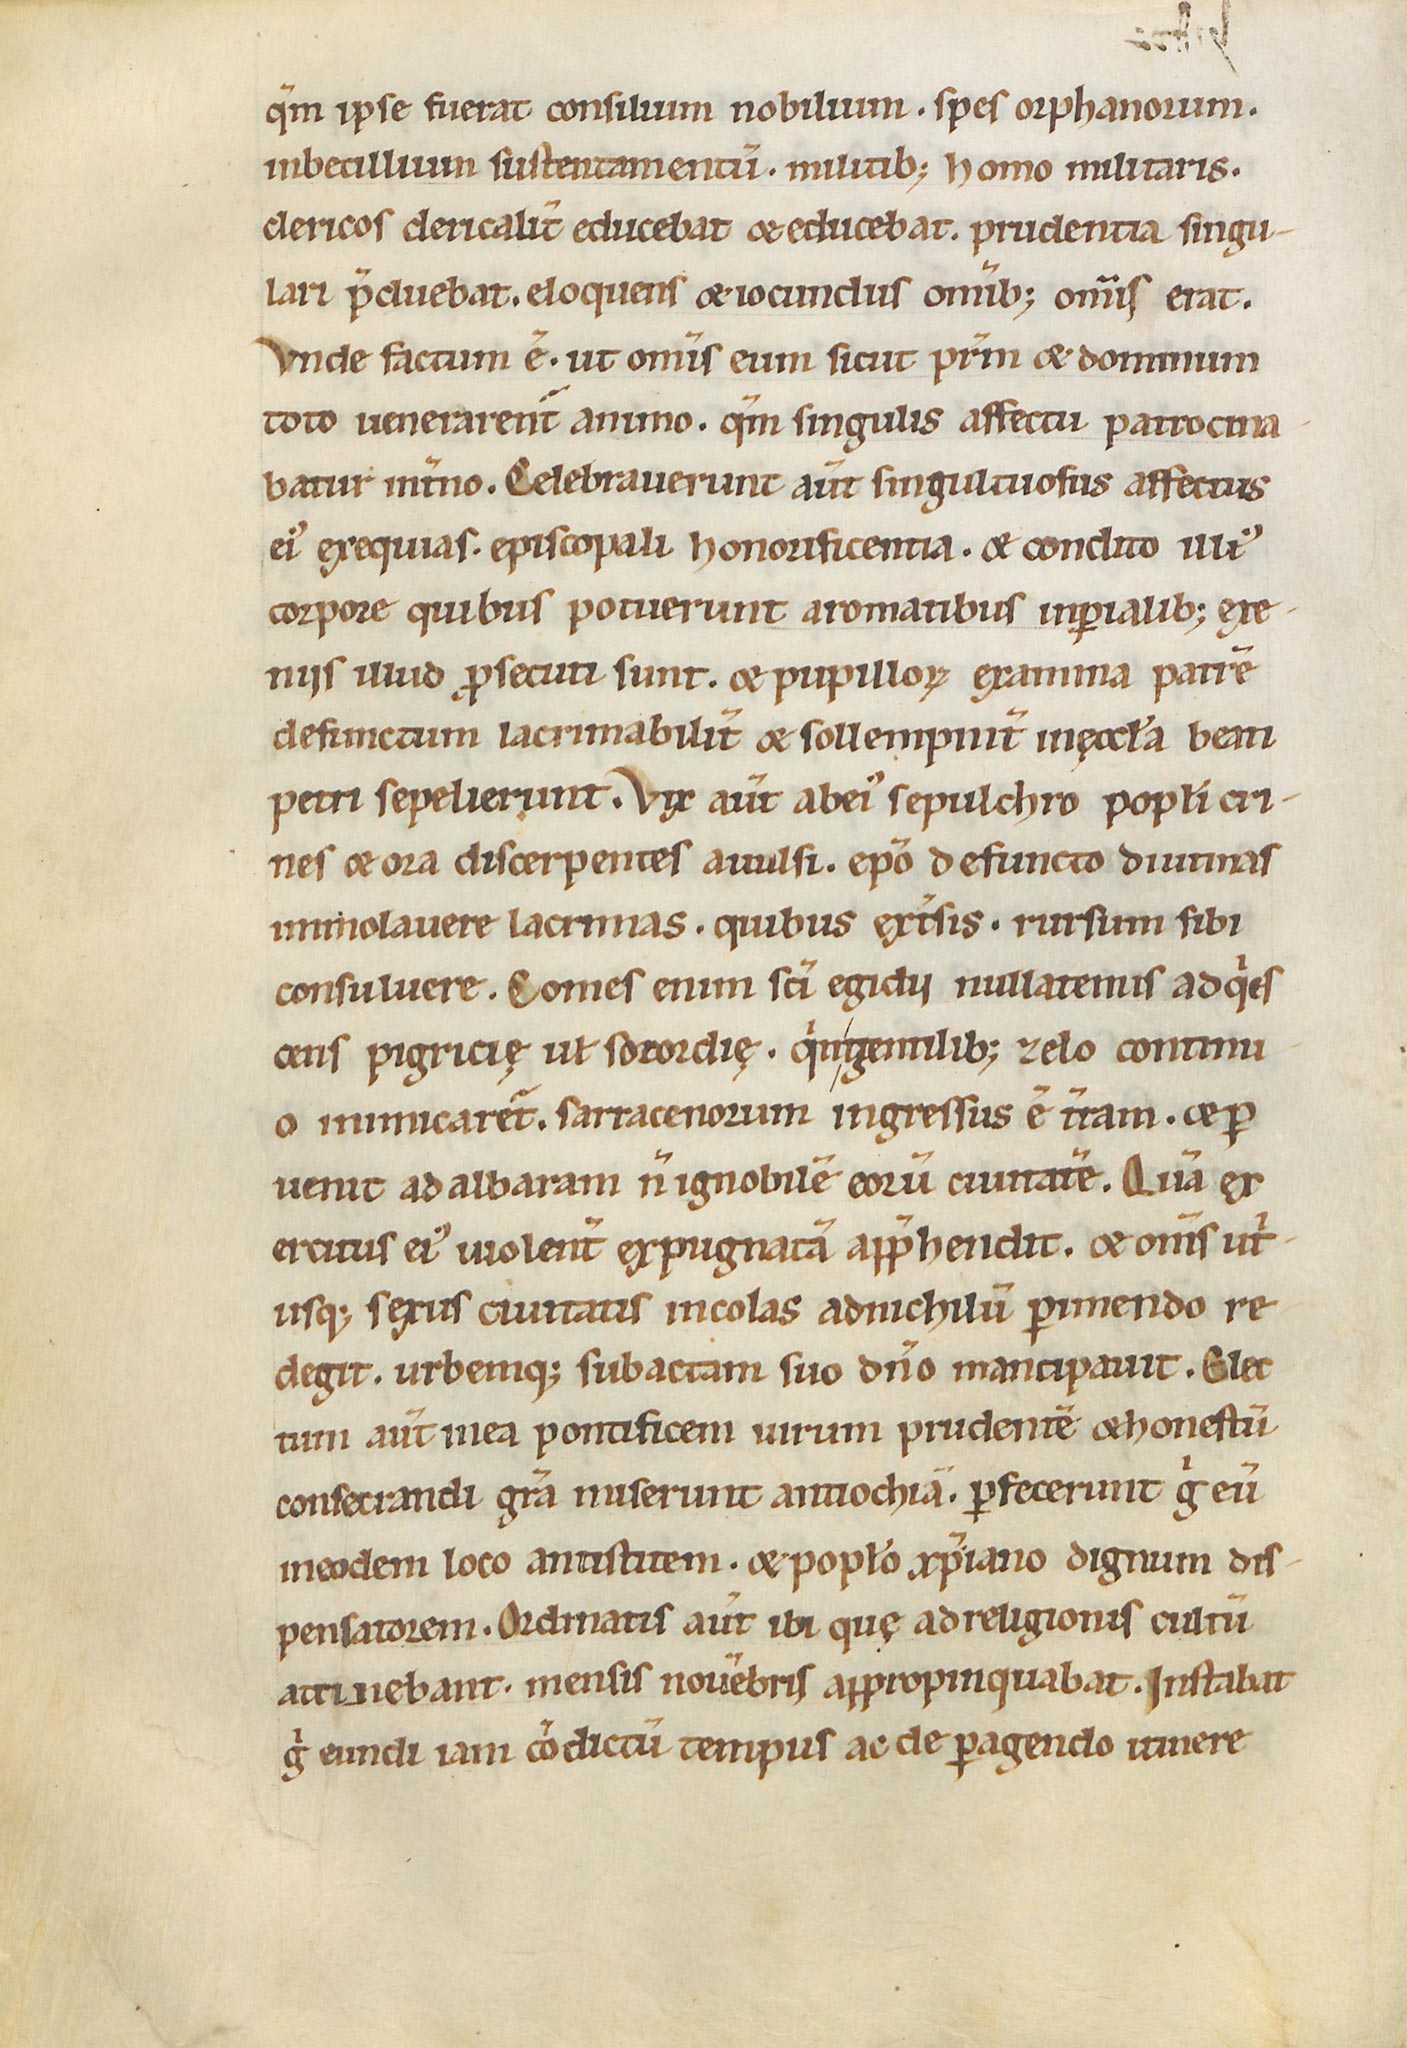 qm̄ ipse fuerat consilium nobilium. spes orphanorum.
inbecillium sustentamentū. militib; homo militaris.
clericos clericalit̄ educebat & educebat. prudentia singu-
lari p̄cluebat. eloquens & iocundus om̄ib; om̄is erat.
Vnde factum ē. ut om̄is eum sicut pr̄m & dominum
toto uenerarent̄ animo. qm̄ singulis affectu patrocina
batur int̄no. Celebrauerunt aūt singultuosus affectus
ei᾽ exequias. episcopali honorificentia. & condito illi᾽
corpore quibus potuerunt aromatibus inꝑialib; exe-
niis illud ꝓsecuti sunt. & pupilloꝝ examina patrē
defunctum lacrimabilit̄ & sollempnit̄ inęccła beati
petri sepelierunt. Vix aūt abei᾽ sepulchro popłi cri-
nes & ora discerpentes auulsi. ep̄o defuncto diutinas
immolauere lacrimas. quibus ext̄sis. rursum sibi
consuluere. Comes enim sc̄i egidii nullatenus adqͥes
cens pigricię ut̄ socordię. qͥn gentilib; zelo continu
o inimicaret̄. sarracenorum ingressus ē t̄ram. & ꝑ
uenit ad albaram n̄ ignobilē eorū ciuitatē. Quā ex
ercitus ei᾽ uiolent̄ expugnatā app̄hendit. & om̄is utͥ-
usq; sexus ciuitatis incolas adnichilū ꝑimendo re-
degit. urbemq; subactam suo dn̄o mancipauit. Elec
tum aūt inea pontificem uirum prudentē & honestū
consecrandi gr̄a miserunt antiochiā. ꝑfecerunt gͥ eū
ineodem loco antistitem. & popło xp̄iano dignum dis-
pensatorem. Ordinatis aūt ibi quę ad religionis cultū
attinebant. mensis nouēbris appropinquabat. Instabat
gͥ eundi iam cōdictū tempus ac de ꝑagendo itinere